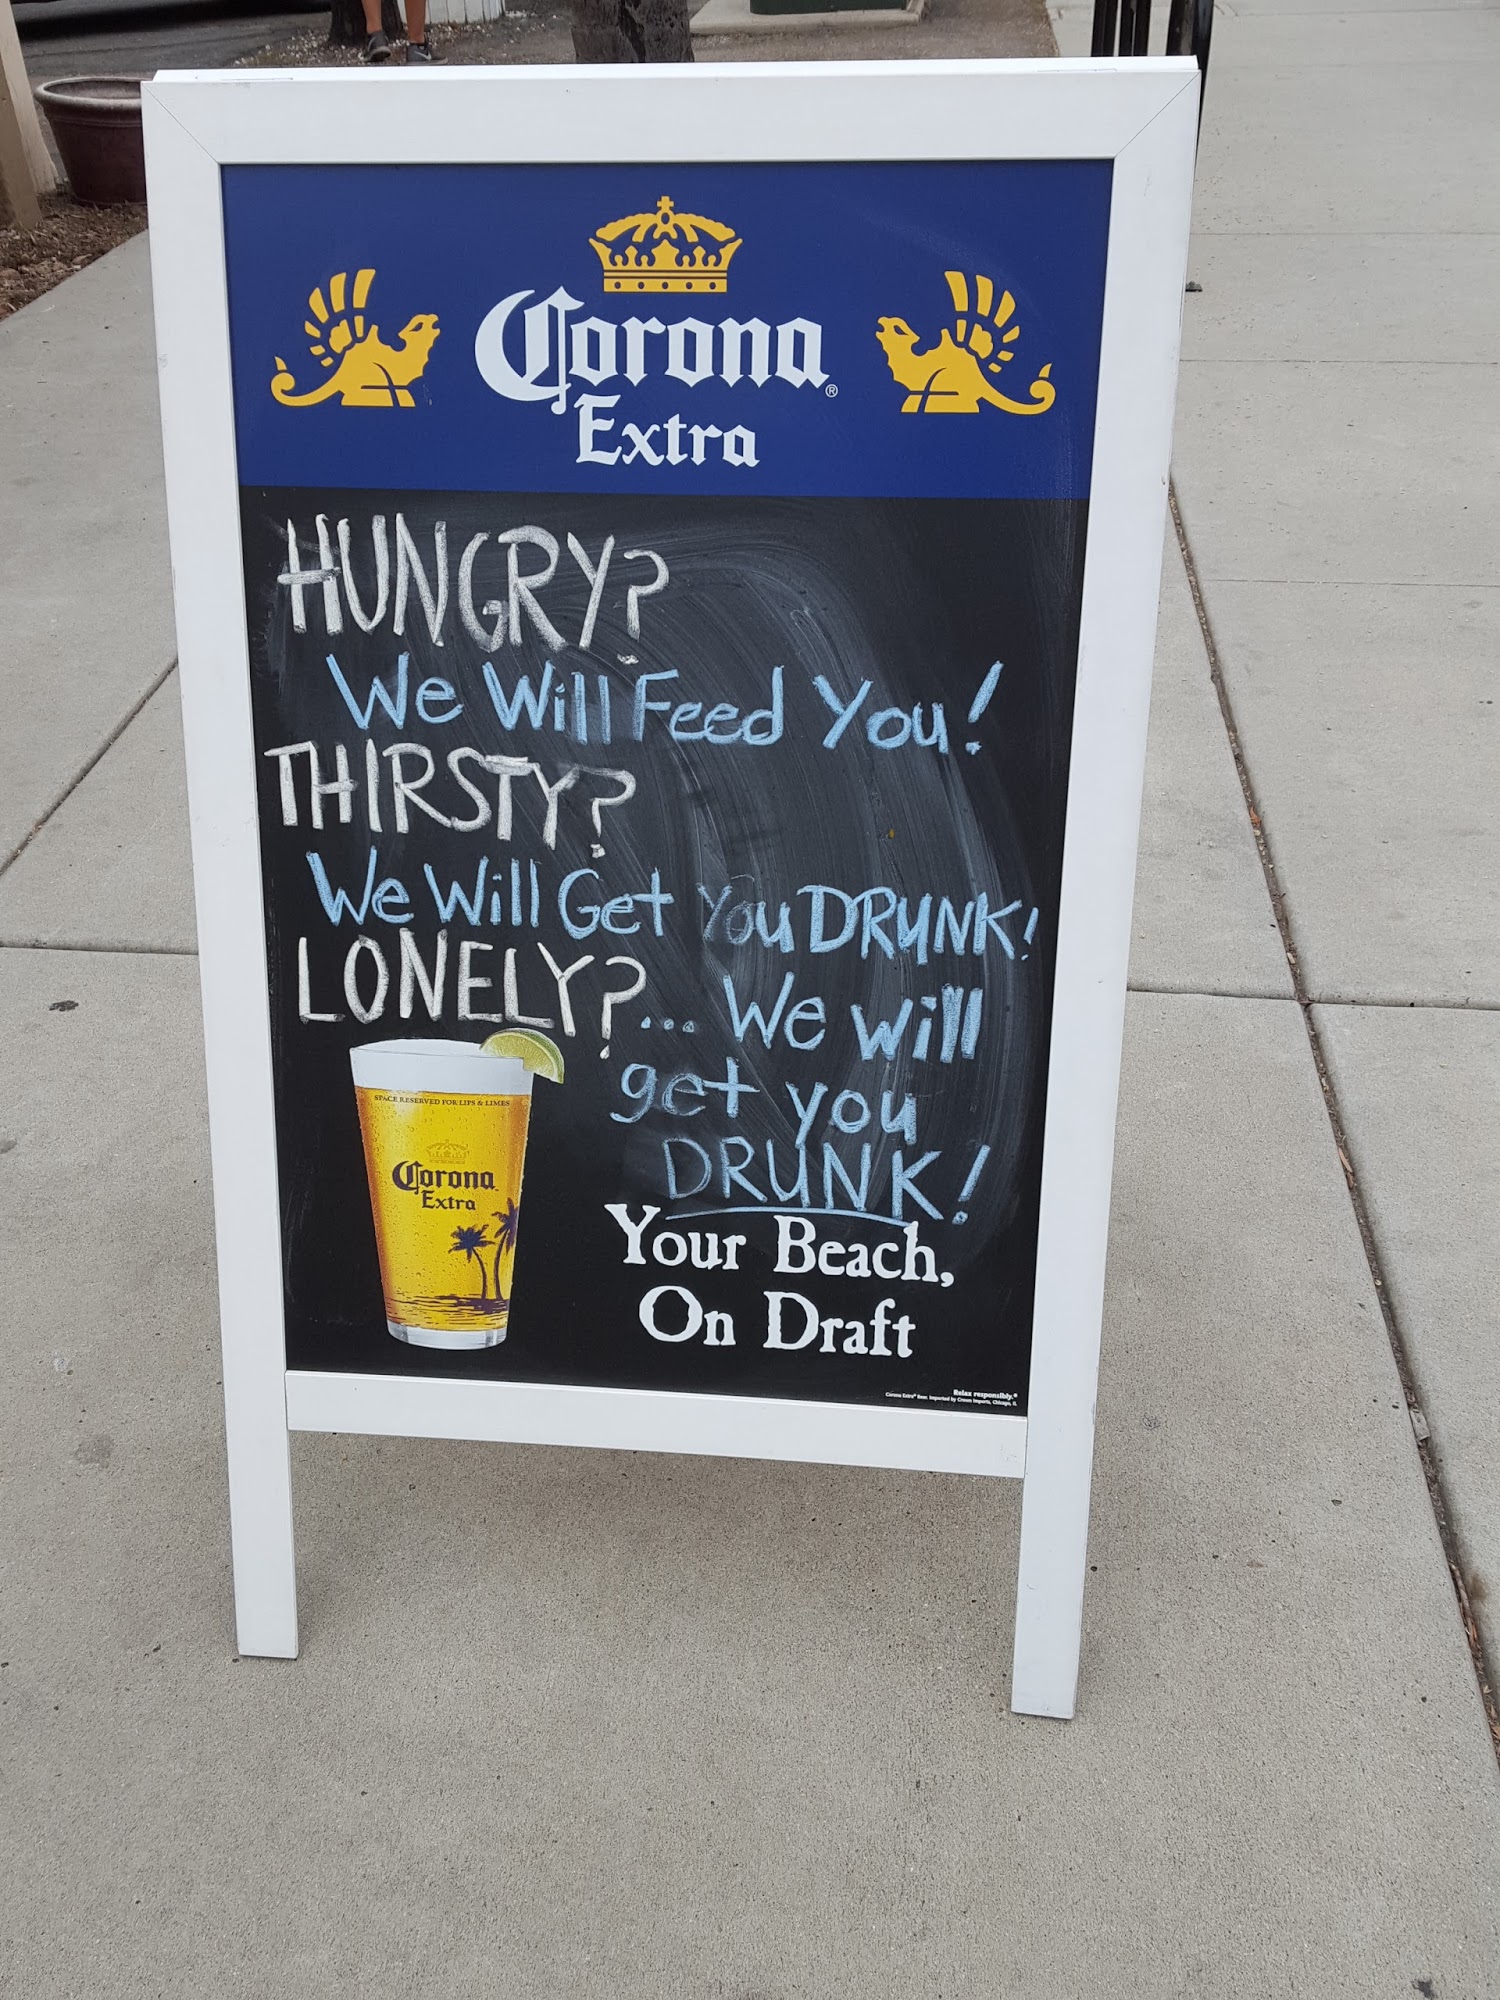 Corona®
Extra
HUNGRY?
We Will Feed You!
THIRSTY?
We Will Get You DRUNK!
LONELY?... We will
get you
DRUNK!
SPACE RESERVED FOR LIPS & LIMES
Corona
Extra
Your Beach,
On Draft
Relax responsibly.®
Corona Extra® Beer. Imported by Crown Imports, Chicago, IL